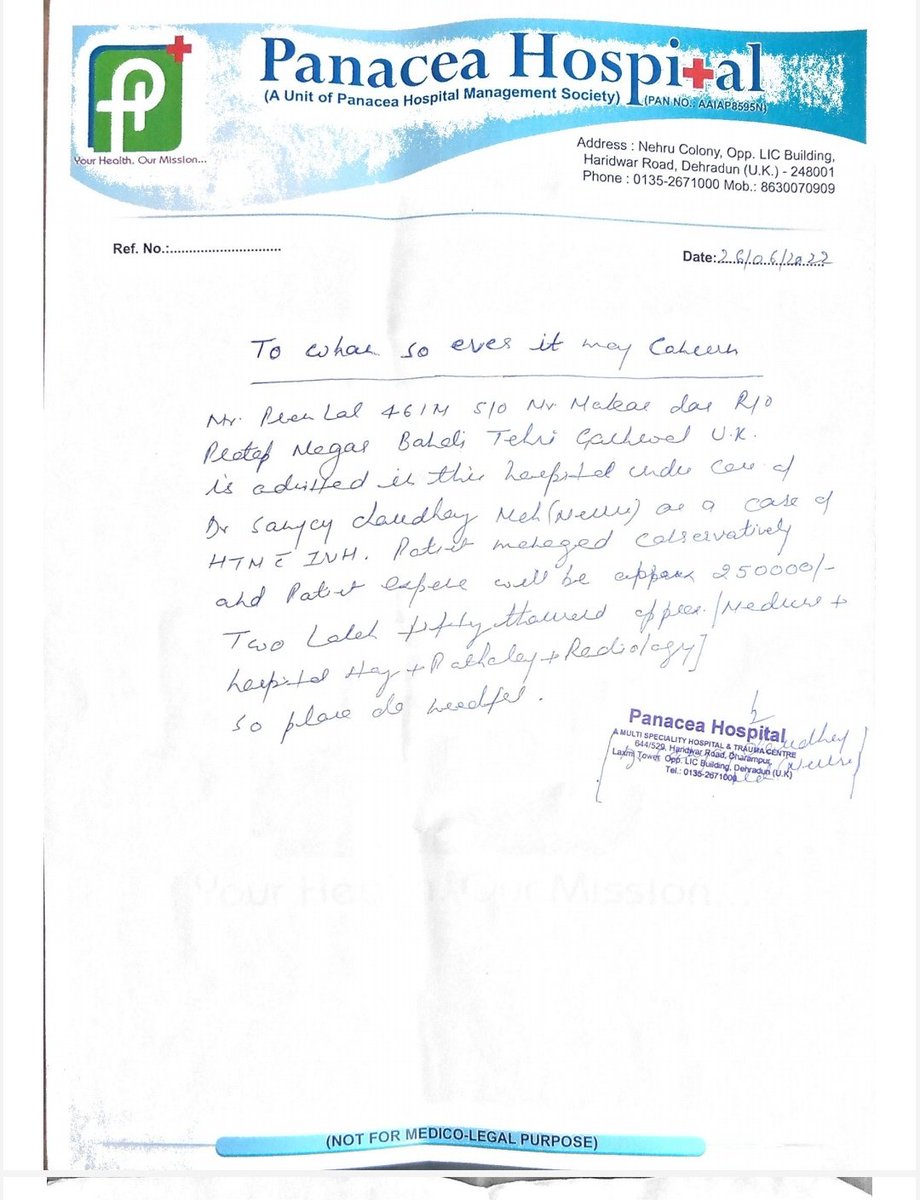 Panacea Hospital
(A Unit of Panacea Hospital Management Society) (PAN NO.: AAIAP8595N)
Your Health. Our Mission...
Address : Nehru Colony, Opp. LIC Building,
Haridwar Road, Dehradun (U.K.) - 248001
Phone : 0135-2671000 Mob.: 8630070909
Ref. No.:
Date: 26/06/2022
To whom so ever it may Concern
Mr. Lal 46/M S/O Mr das R/O
Nagar Tehri Garhwal U.K.
is admitted in this hospital under care of
Dr Sanjay Chaudhary Mch (Neuro) as a case of
HTN IVH. Patient managed conservatively
and Patient expense will be approx 250000/-
Two Lakh fifty thousand approx. [Medicine +
hospital + Pathology + Radiology]
so please do needful.
Panacea Hospital
A MULTI SPECIALITY HOSPITAL & TRAUMA CENTRE
644/529, Haridwar Road, Dharampur,
Laxmi Tower Opp. LIC Building, Dehradun (U.K)
Tel.: 0135-2671000
(Neuro)
Your Health. Our Mission...
(NOT FOR MEDICO-LEGAL PURPOSE)